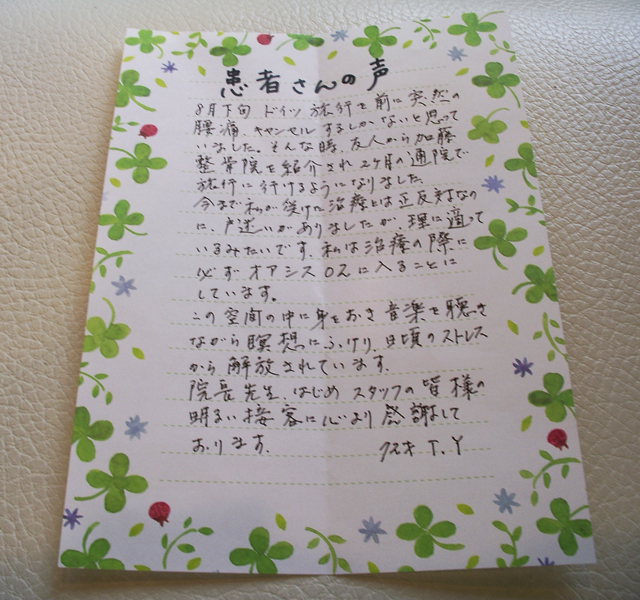 患者さんの声
8月下旬 ドイツ旅行を前に突然の
腰痛、キャンセルするしかないと思って
いました。そんな時、友人から加藤
整骨院を紹介され2ケ月の通院で
旅行に行けるようになりました。
今まで私が受けた治療とは正反対なの
に、戸迷いがありましたが、理に適って
いるみたいです。私は治療の際に
必ずオアシスO2に入ることに
しています。
この空間の中に身をおき音楽を聴き
ながら瞑想にふけり、日頃のストレス
から解放されています。
院長先生、はじめスタッフの皆様の
明るい接客に心より感謝して
おります。
T.Y